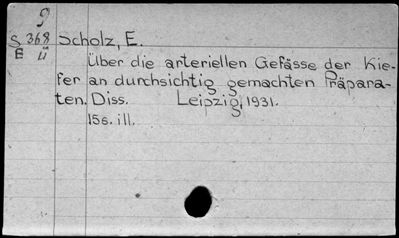 9
S 368 Scholz, E.
E ü
Über die arteriellen Gefässe der Kie-
fer an durchsichtig gemachten Präpara-
ten. Diss. Leipzig, 1931.
15s. ill.